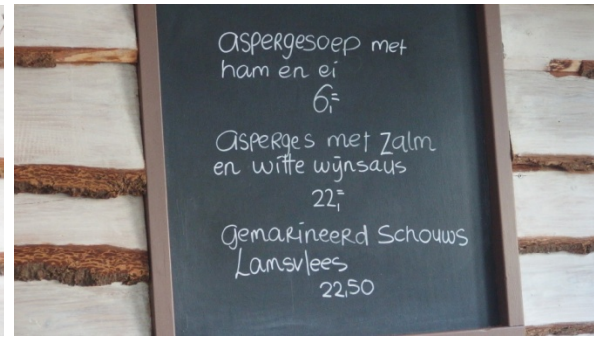 aspergesoep met
ham en ei
6,=
asperges met zalm
en witte wijnsaus
22,=
gemarineerd Schouws
Lamsvlees
22,50